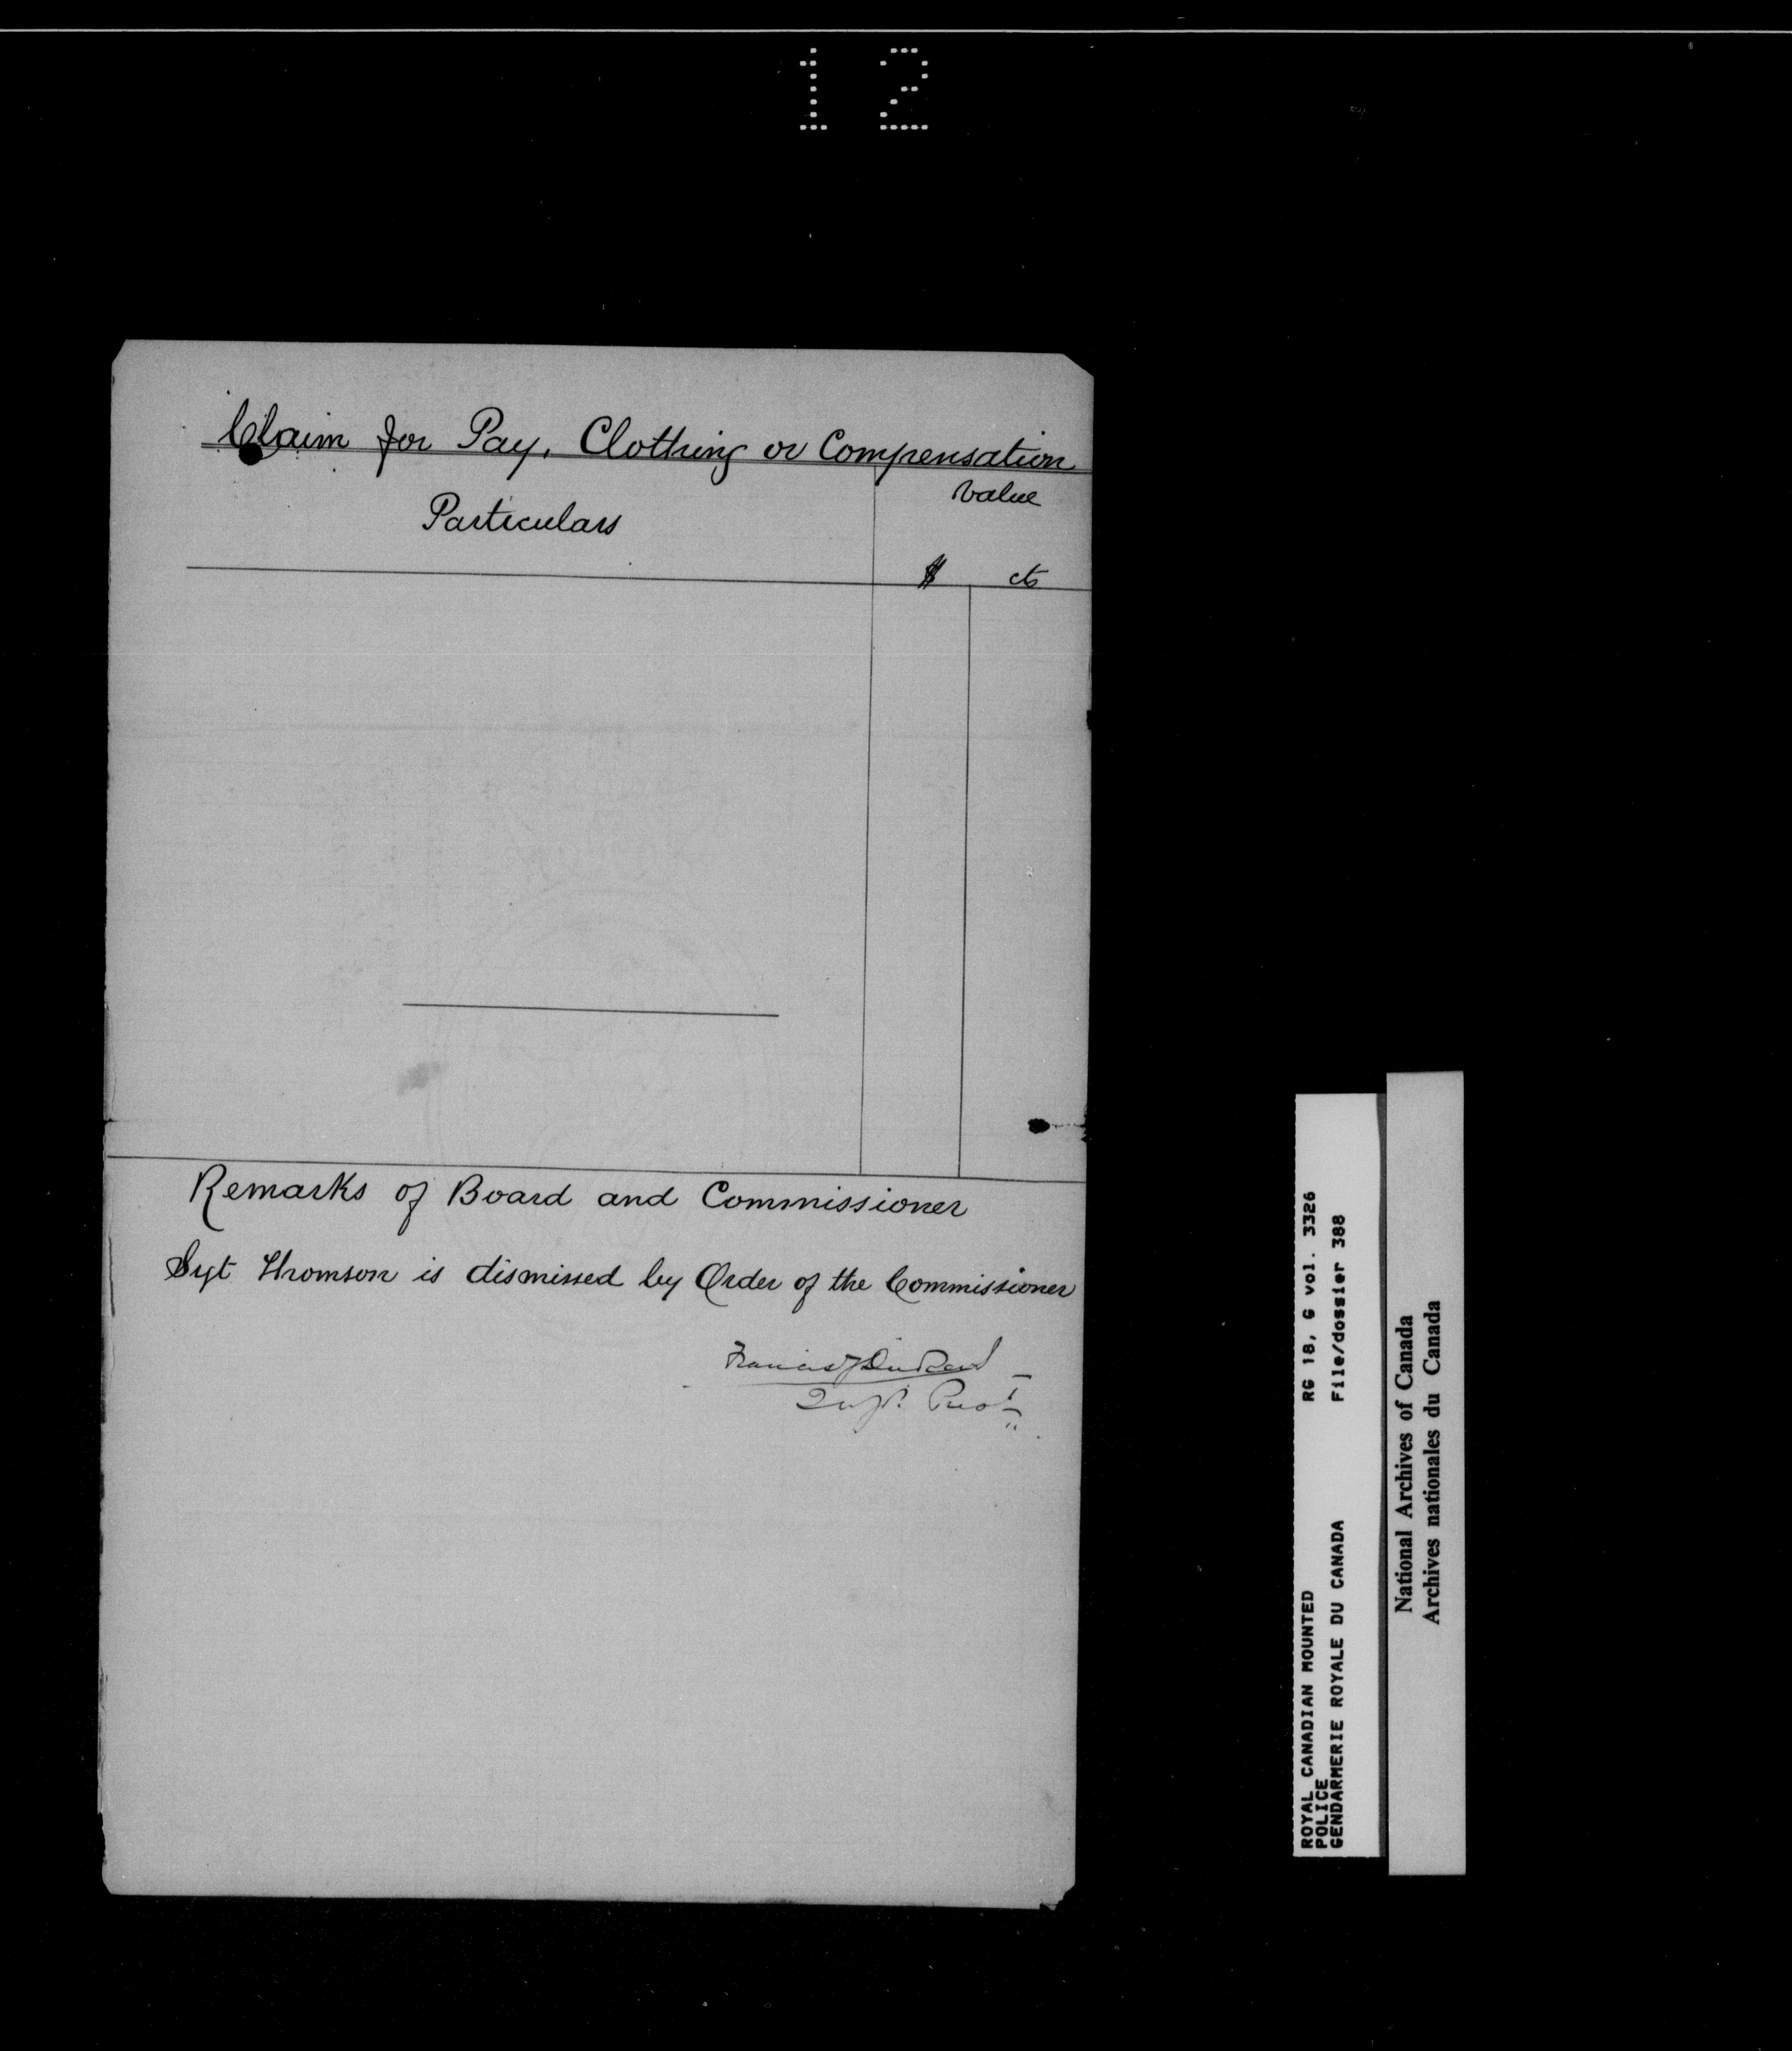 12
Claim for Pay, Clothing or Compensation
Particulars
Value
$ cts
Remarks of Board and Commissioner
Sgt Thomson is dismissed by Order of the Commissioner
Francis J Dickens
Inspt.
ROYAL CANADIAN MOUNTED
POLICE
GENDARMERIE ROYALE DU CANADA
RG 18, G vol. 3326
File/dossier 388
National Archives of Canada
Archives nationales du Canada